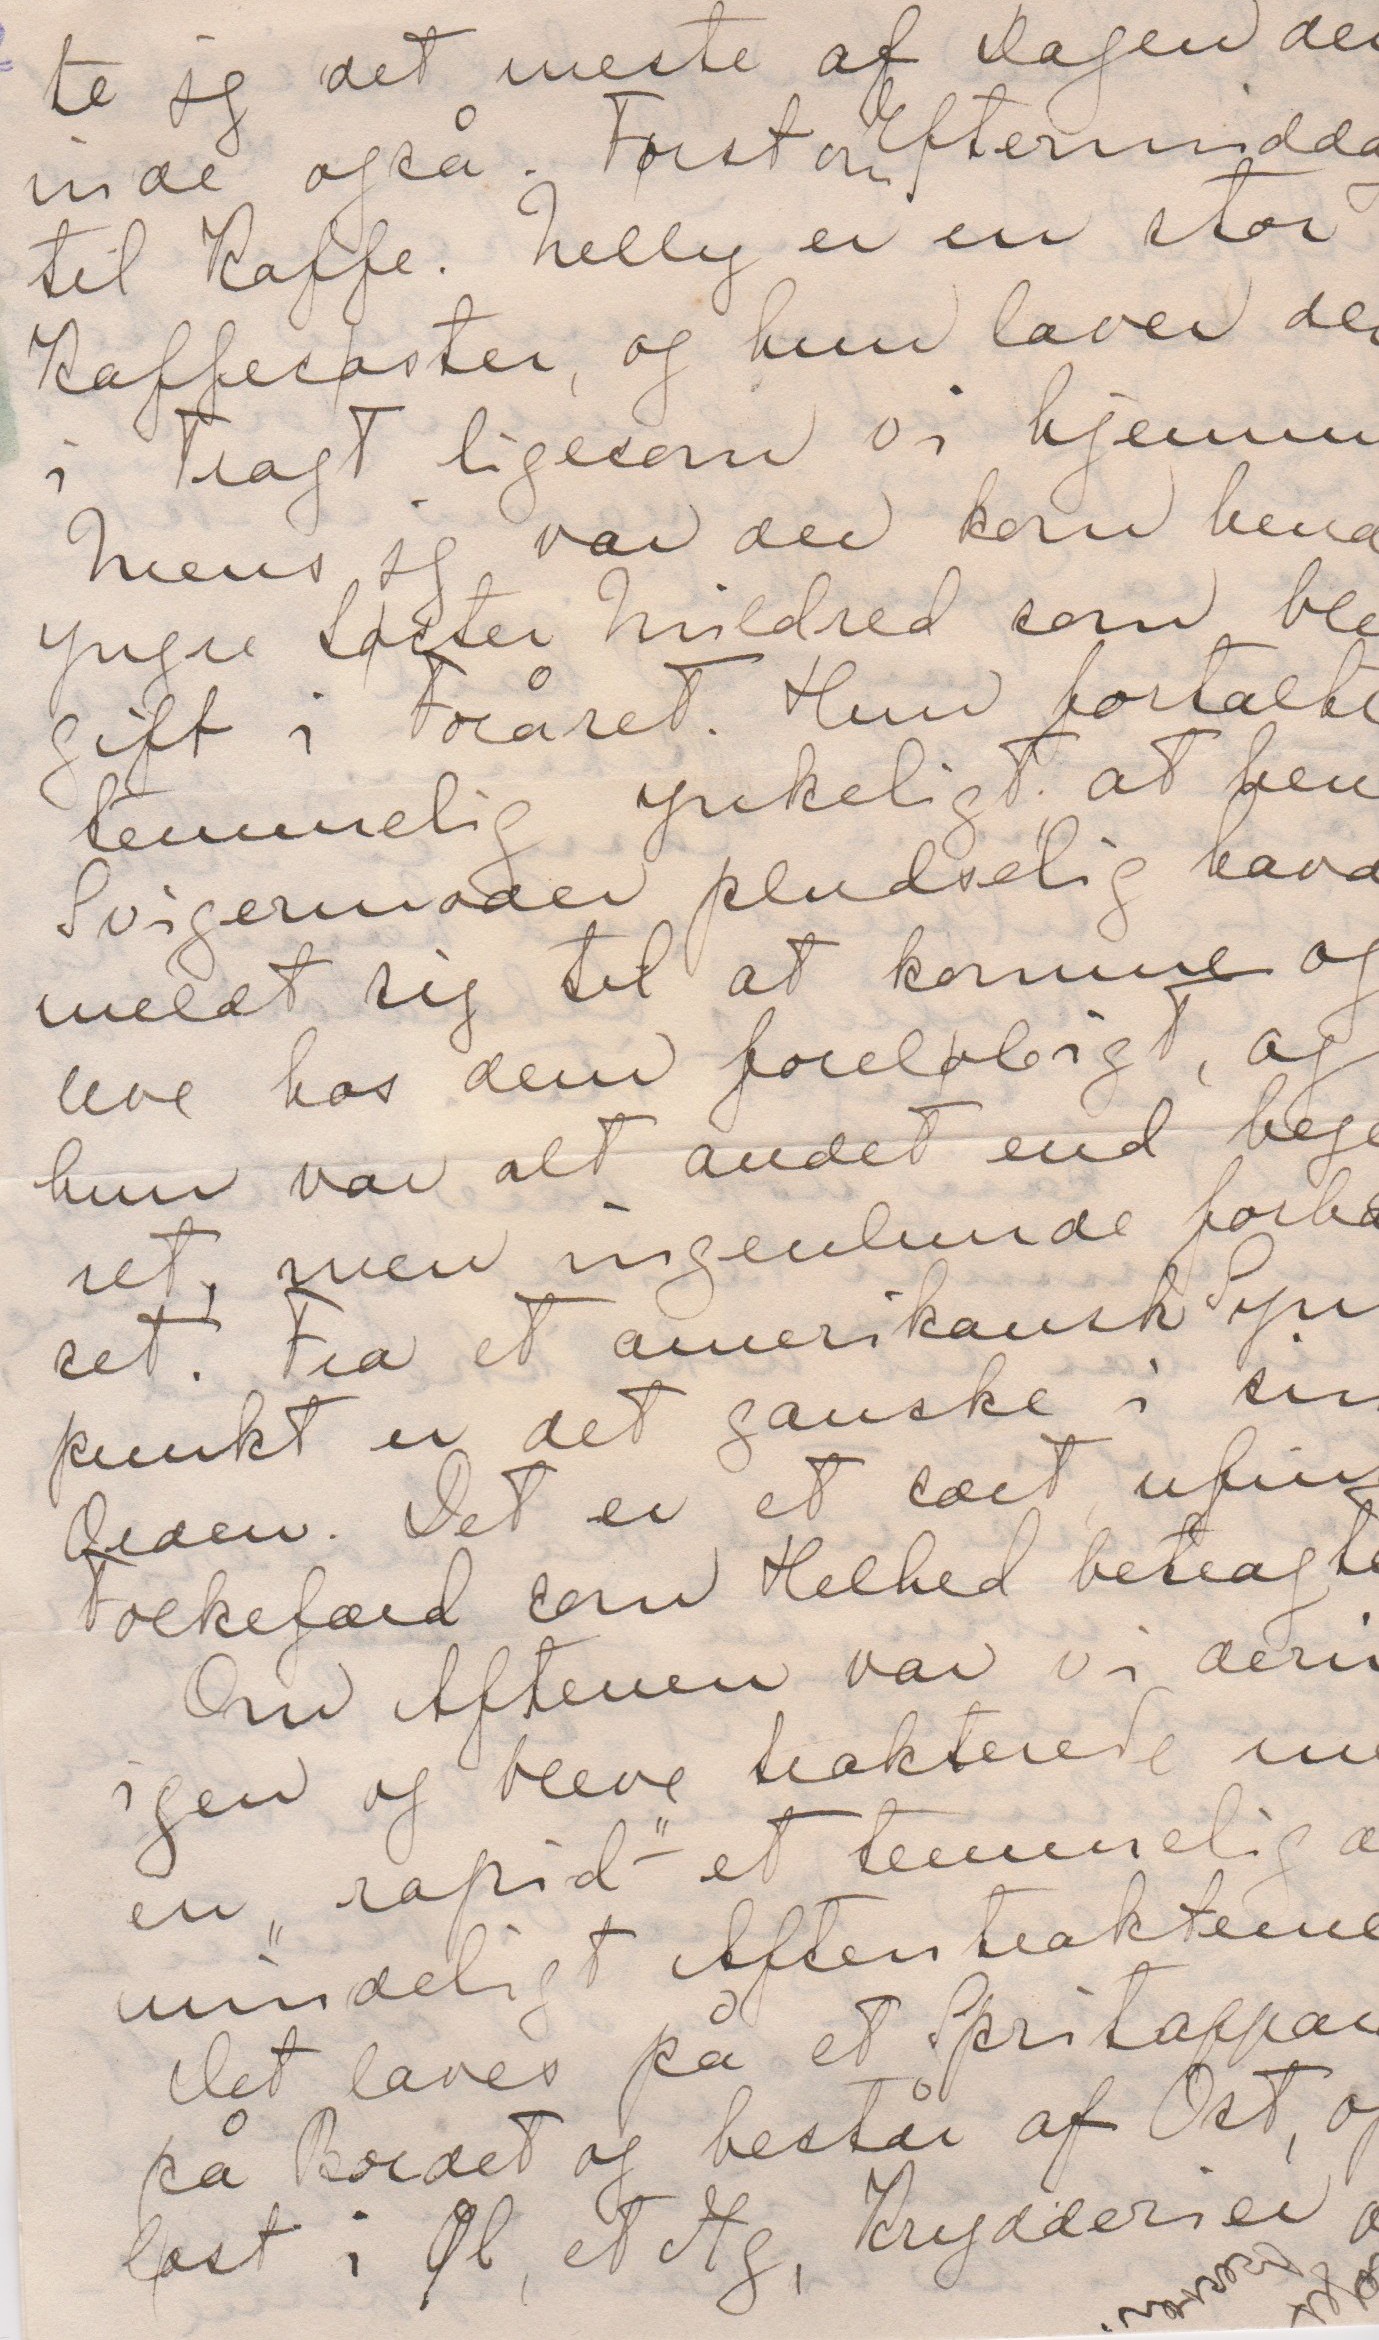 te jeg det meste af Dagen der
inde også. Først om Eftermiddag
til Kaffe. Nelly er en stor
Kaffesøster, og hun laver den
i Tragt ligesom vi hjemme
Mens jeg var der kom hend
yngre Søster Mildred som ble
gift i Foråret. Hun fortalte
temmelig ynkeligt, at hen
Svigermoder pludselig havd
meldt sig til at komme og
leve hos dem foreløbigt, og
hun var alt andet end bege
ret, men ingenlunde forba
set. Fra et amerikansk Syns
punkt er det ganske i sin
Orden. Det er et sært, ufint
Folkefærd som Helhed betragte
Om Aftenen var vi derin
igen og bleve trakterede me
en „rapid“ - et temmelig a
mindeligt Aftentrakteme
Det laves på et Spritappar
på Bordet og består af Ost, op
løst i Øl, et Æg, Krydderier o